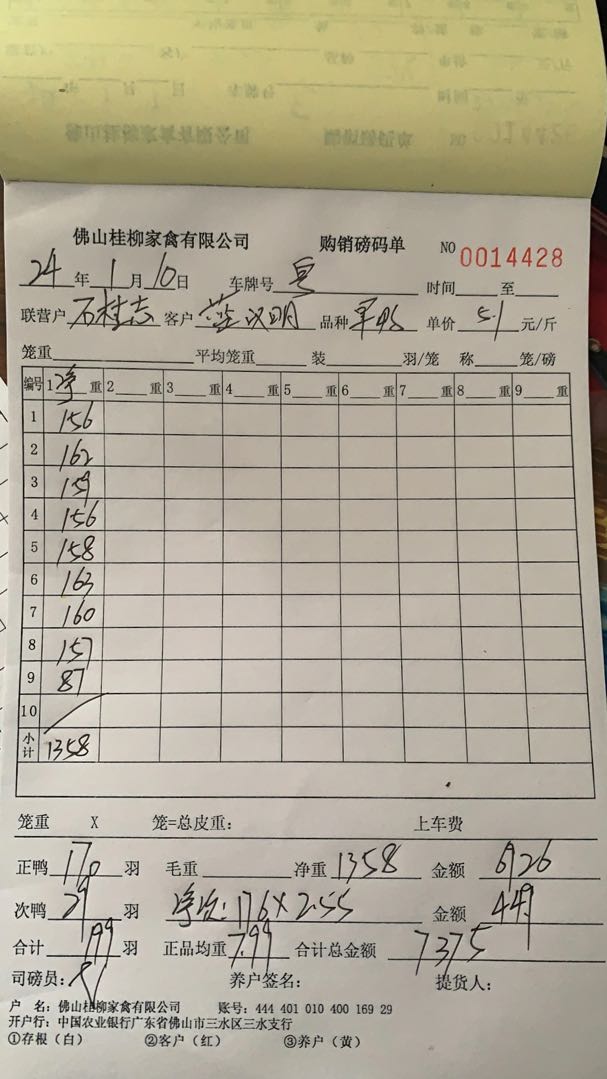 佛山桂柳家禽有限公司 购销磅码单 NO 0014428
24年1月10日 车牌号 时间 至
联营户 石桂志 客户 汉明 品种 单价 5.1 元/斤
笼重 平均笼重 装 羽/笼 称 笼/磅
编号 1净重 2 重 3 重 4 重 5 重 6 重 7 重 8 重 9 重
1 156
2 162
3 159
4 156
5 158
6 163
7 160
8 157
9 87
10
小计 1358
笼重 X 笼=总皮重： 上车费
正鸭 170 羽 毛重 净重 1358 金额 6926
次鸭 29 羽 净次：176×2.55 金额 449
合计 199 羽 正品均重 7.99 合计总金额 7375
司磅员： 养户签名： 提货人：
户 名：佛山桂柳家禽有限公司 账号：444 401 010 400 169 29
开户行：中国农业银行广东省佛山市三水区三水支行
①存根（白） ②客户（红） ③养户（黄）